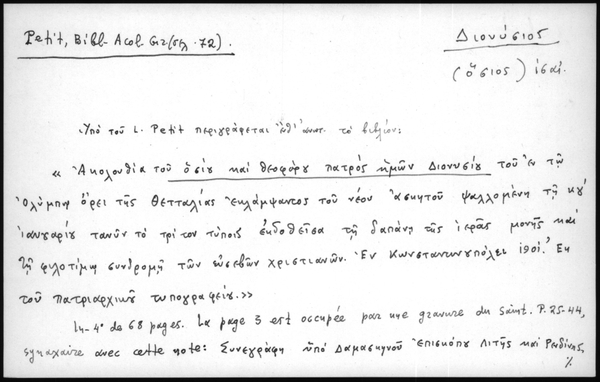 Petit, Bibl. Acol. Gr (σελ. 72).
Διονύσιος
(ὅσιος) ἰσαί.
Ὑπὸ τοῦ L. Petit περιγράφεται τὸ βιβλίον:
« Ἀκολουθία τοῦ ὁσίου καὶ θεοφόρου πατρὸς ἡμῶν Διονυσίου τοῦ ἐν τῷ
Ὀλύμπῳ ὄρει τῆς Θετταλίας ἐκλάμψαντος τοῦ νέου ἀσκητοῦ ψαλλομένη τῇ κγ΄
ἰανουαρίου τανῦν τὸ τρίτον τύποις ἐκδοθεῖσα τῇ δαπάνῃ τῆς ἱερᾶς μονῆς καὶ
τῇ φιλοτίμῳ συνδρομῇ τῶν εὐσεβῶν χριστιανῶν. Ἐν Κωνσταντινουπόλει 1901. Ἐκ
τοῦ πατριαρχικοῦ τυπογραφείου.»
In-4° de 68 pages. La page 3 est occupée par une gravure du Saint. P. 25-44,
synaxaire avec cette note: Συνεγράφη ὑπὸ Δαμασκηνοῦ ἐπισκόπου Λιτῆς καὶ Ρενδίνης,
%